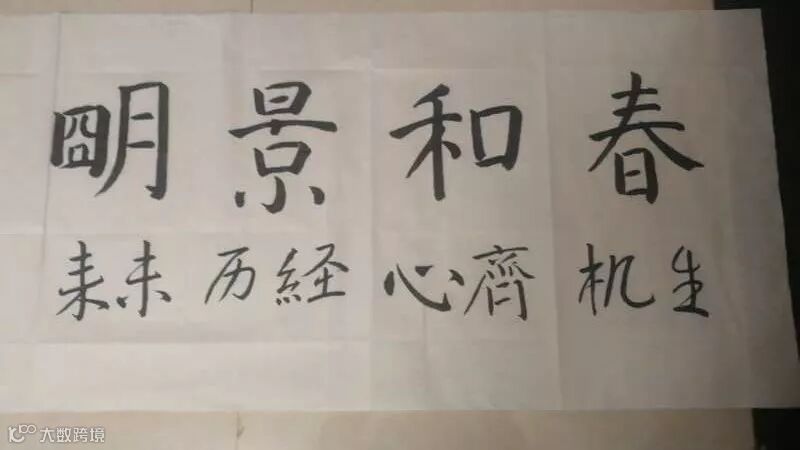 春和景朙
生机 齊心 経历 未来
大数跨境